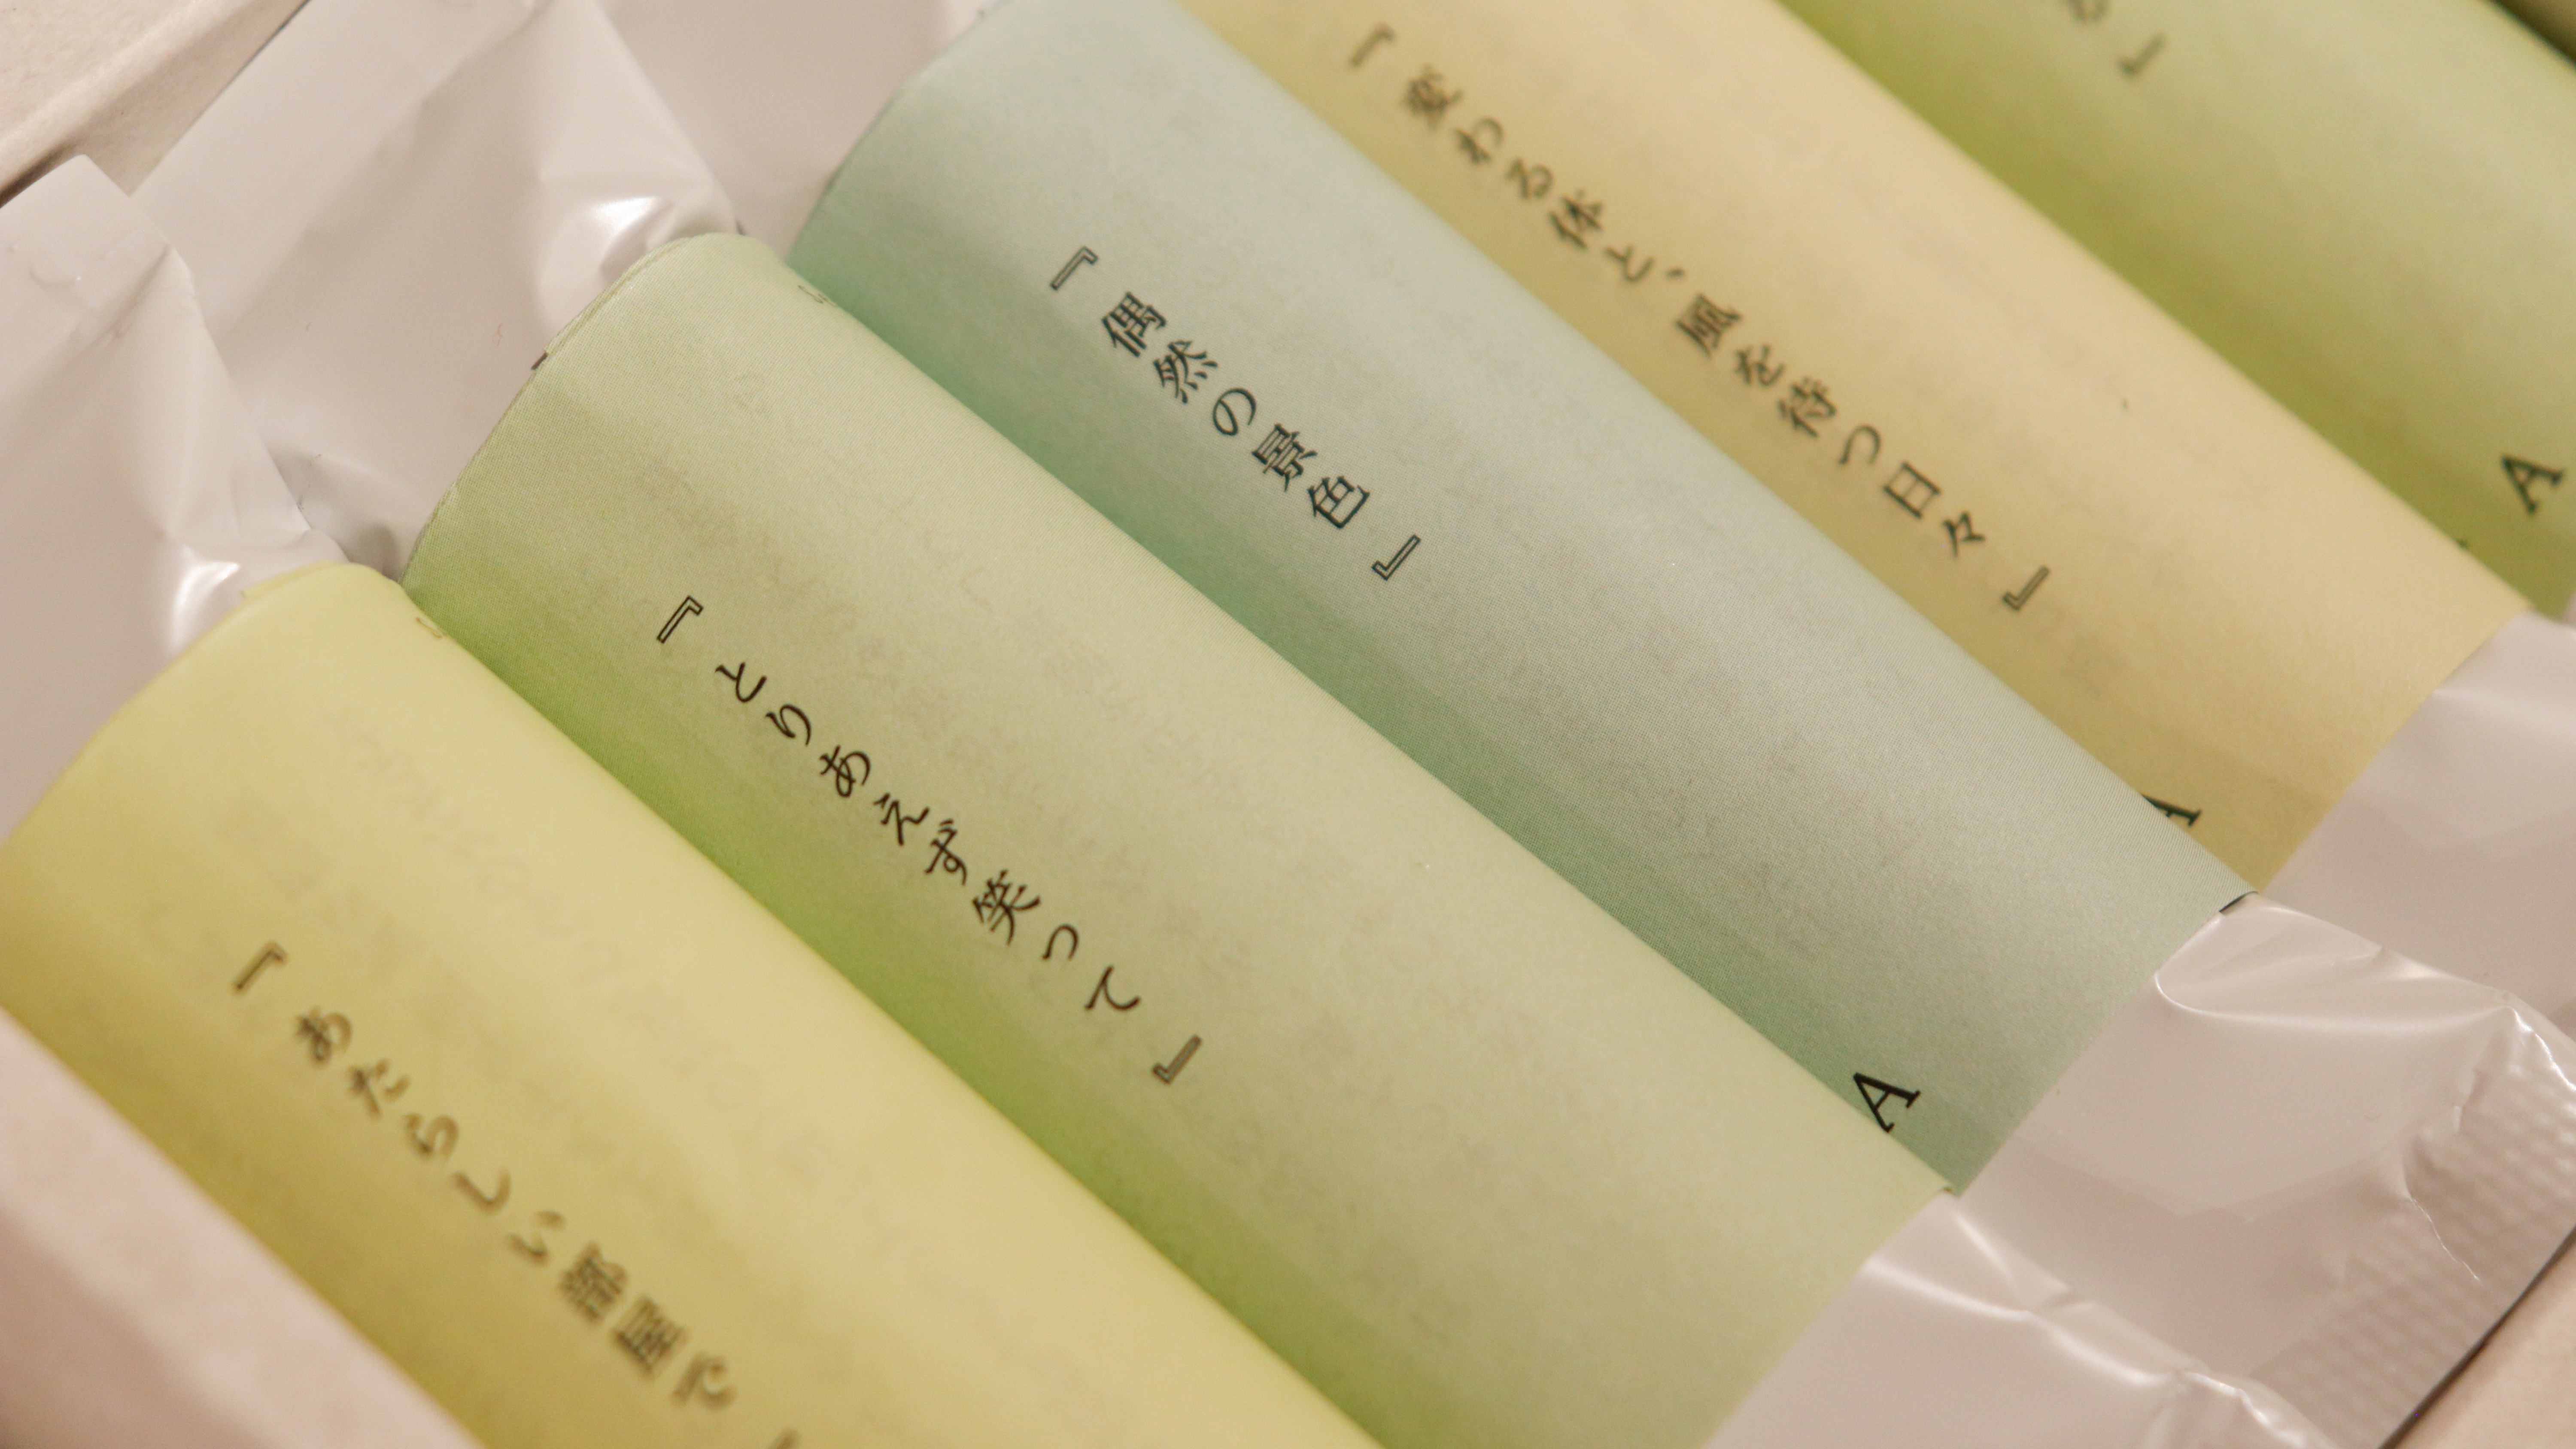 『あたらしい部屋で
『とりあえず笑って』
『偶然の景色』
A
『変わる体と、風を待つ日々』
A
』
A